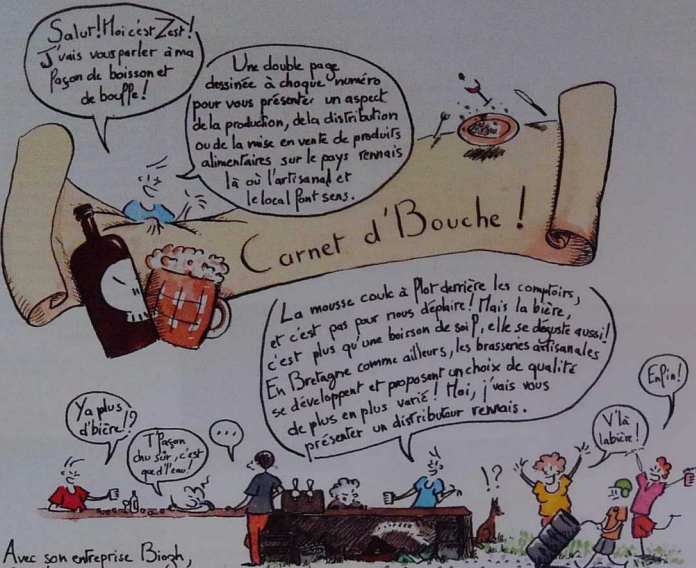 Salut! Moi c'est Zest!
J'vais vous parler à ma
façon de boisson et
de bouffe!
Une double page
dessinée à chaque numéro
pour vous présenter un aspect
de la production, de la distribution
ou de la mise en vente de produits
alimentaires sur le pays rennais
là où l'artisanal et
le local font sens.
Carnet d'Bouche !
La mousse coule à flot derrière les comptoirs,
et c'est pas pour nous déplaire! Mais la bière,
c'est plus qu'une boisson de soif, elle se déguste aussi!
En Bretagne comme ailleurs, les brasseries artisanales
se développent et proposent un choix de qualité
de plus en plus varié! Moi, j'vais vous
présenter un distributeur rennais.
Ya plus
d'bière!?
T'façon
chu sûr, c'est
que d'l'eau!
...
!?
V'là
la bière!
Enfin!
Avec son entreprise Biozh,